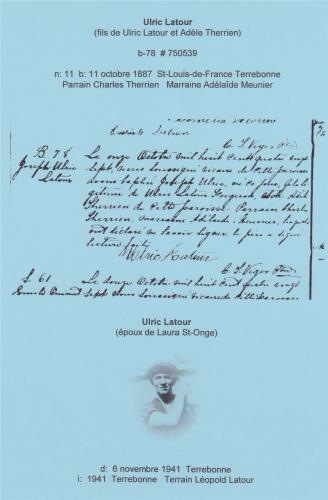 Ulric Latour
(fils de Ulric Latour et Adèle Therrien)
b-78 # 750539
n: 11 b: 11 octobre 1887 St-Louis-de-France Terrebonne
Parrain Charles Therrien Marraine Adélaïde Meunier
B 78
Joseph Ulric
Latour
Le onze Octobre mil huit cent quatre vingt
sept, nous soussigné vicaire de cette paroisse
avons baptisé Joseph Ulric, né ce jour, fils lé
gitime de Ulric Latour
Therrien de cette paroisse. Parrain Charles
Therrien, marraine Meunier, lesquels
ont déclaré ne savoir signer, le père a signé
lecture faite
Ulric Latour
S. 61
Le douze Octobre mil huit cent quatre vingt
sept nous soussigné vicaire de cette paroisse
Ulric Latour
(époux de Laura St-Onge)
d: 6 novembre 1941 Terrebonne
i: 1941 Terrebonne Terrain Léopold Latour